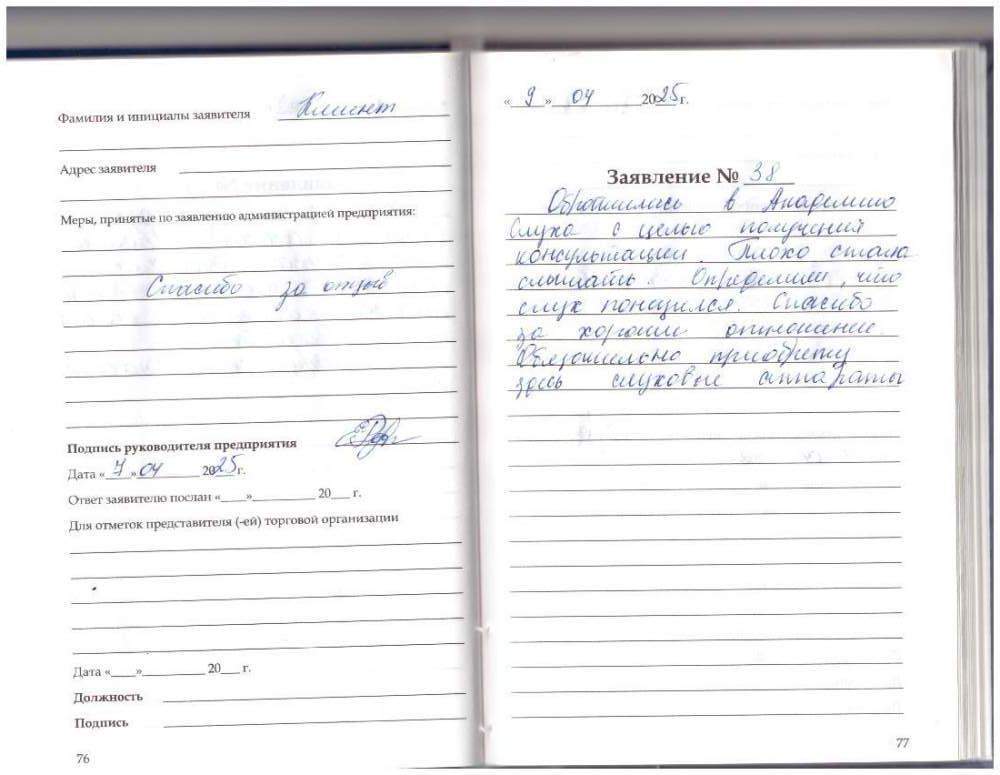 Фамилия и инициалы заявителя Клиент
Адрес заявителя
Меры, принятые по заявлению администрацией предприятия:
Спасибо за отзыв
Подпись руководителя предприятия
Дата «7» 04 2025г.
Ответ заявителю послан «____»__________ 20___ г.
Для отметок представителя (-ей) торговой организации
Дата «____»__________ 20___ г.
Должность
Подпись
76
«9» 04 2025г.
Заявление № 38
Обратилась в Академию
Слуха с целью получения
консультации. Плохо стала
слышать. Определили, что
слух понизился. Спасибо
за хорошее отношение.
Обязательно приобрету
здесь слуховые аппараты
77